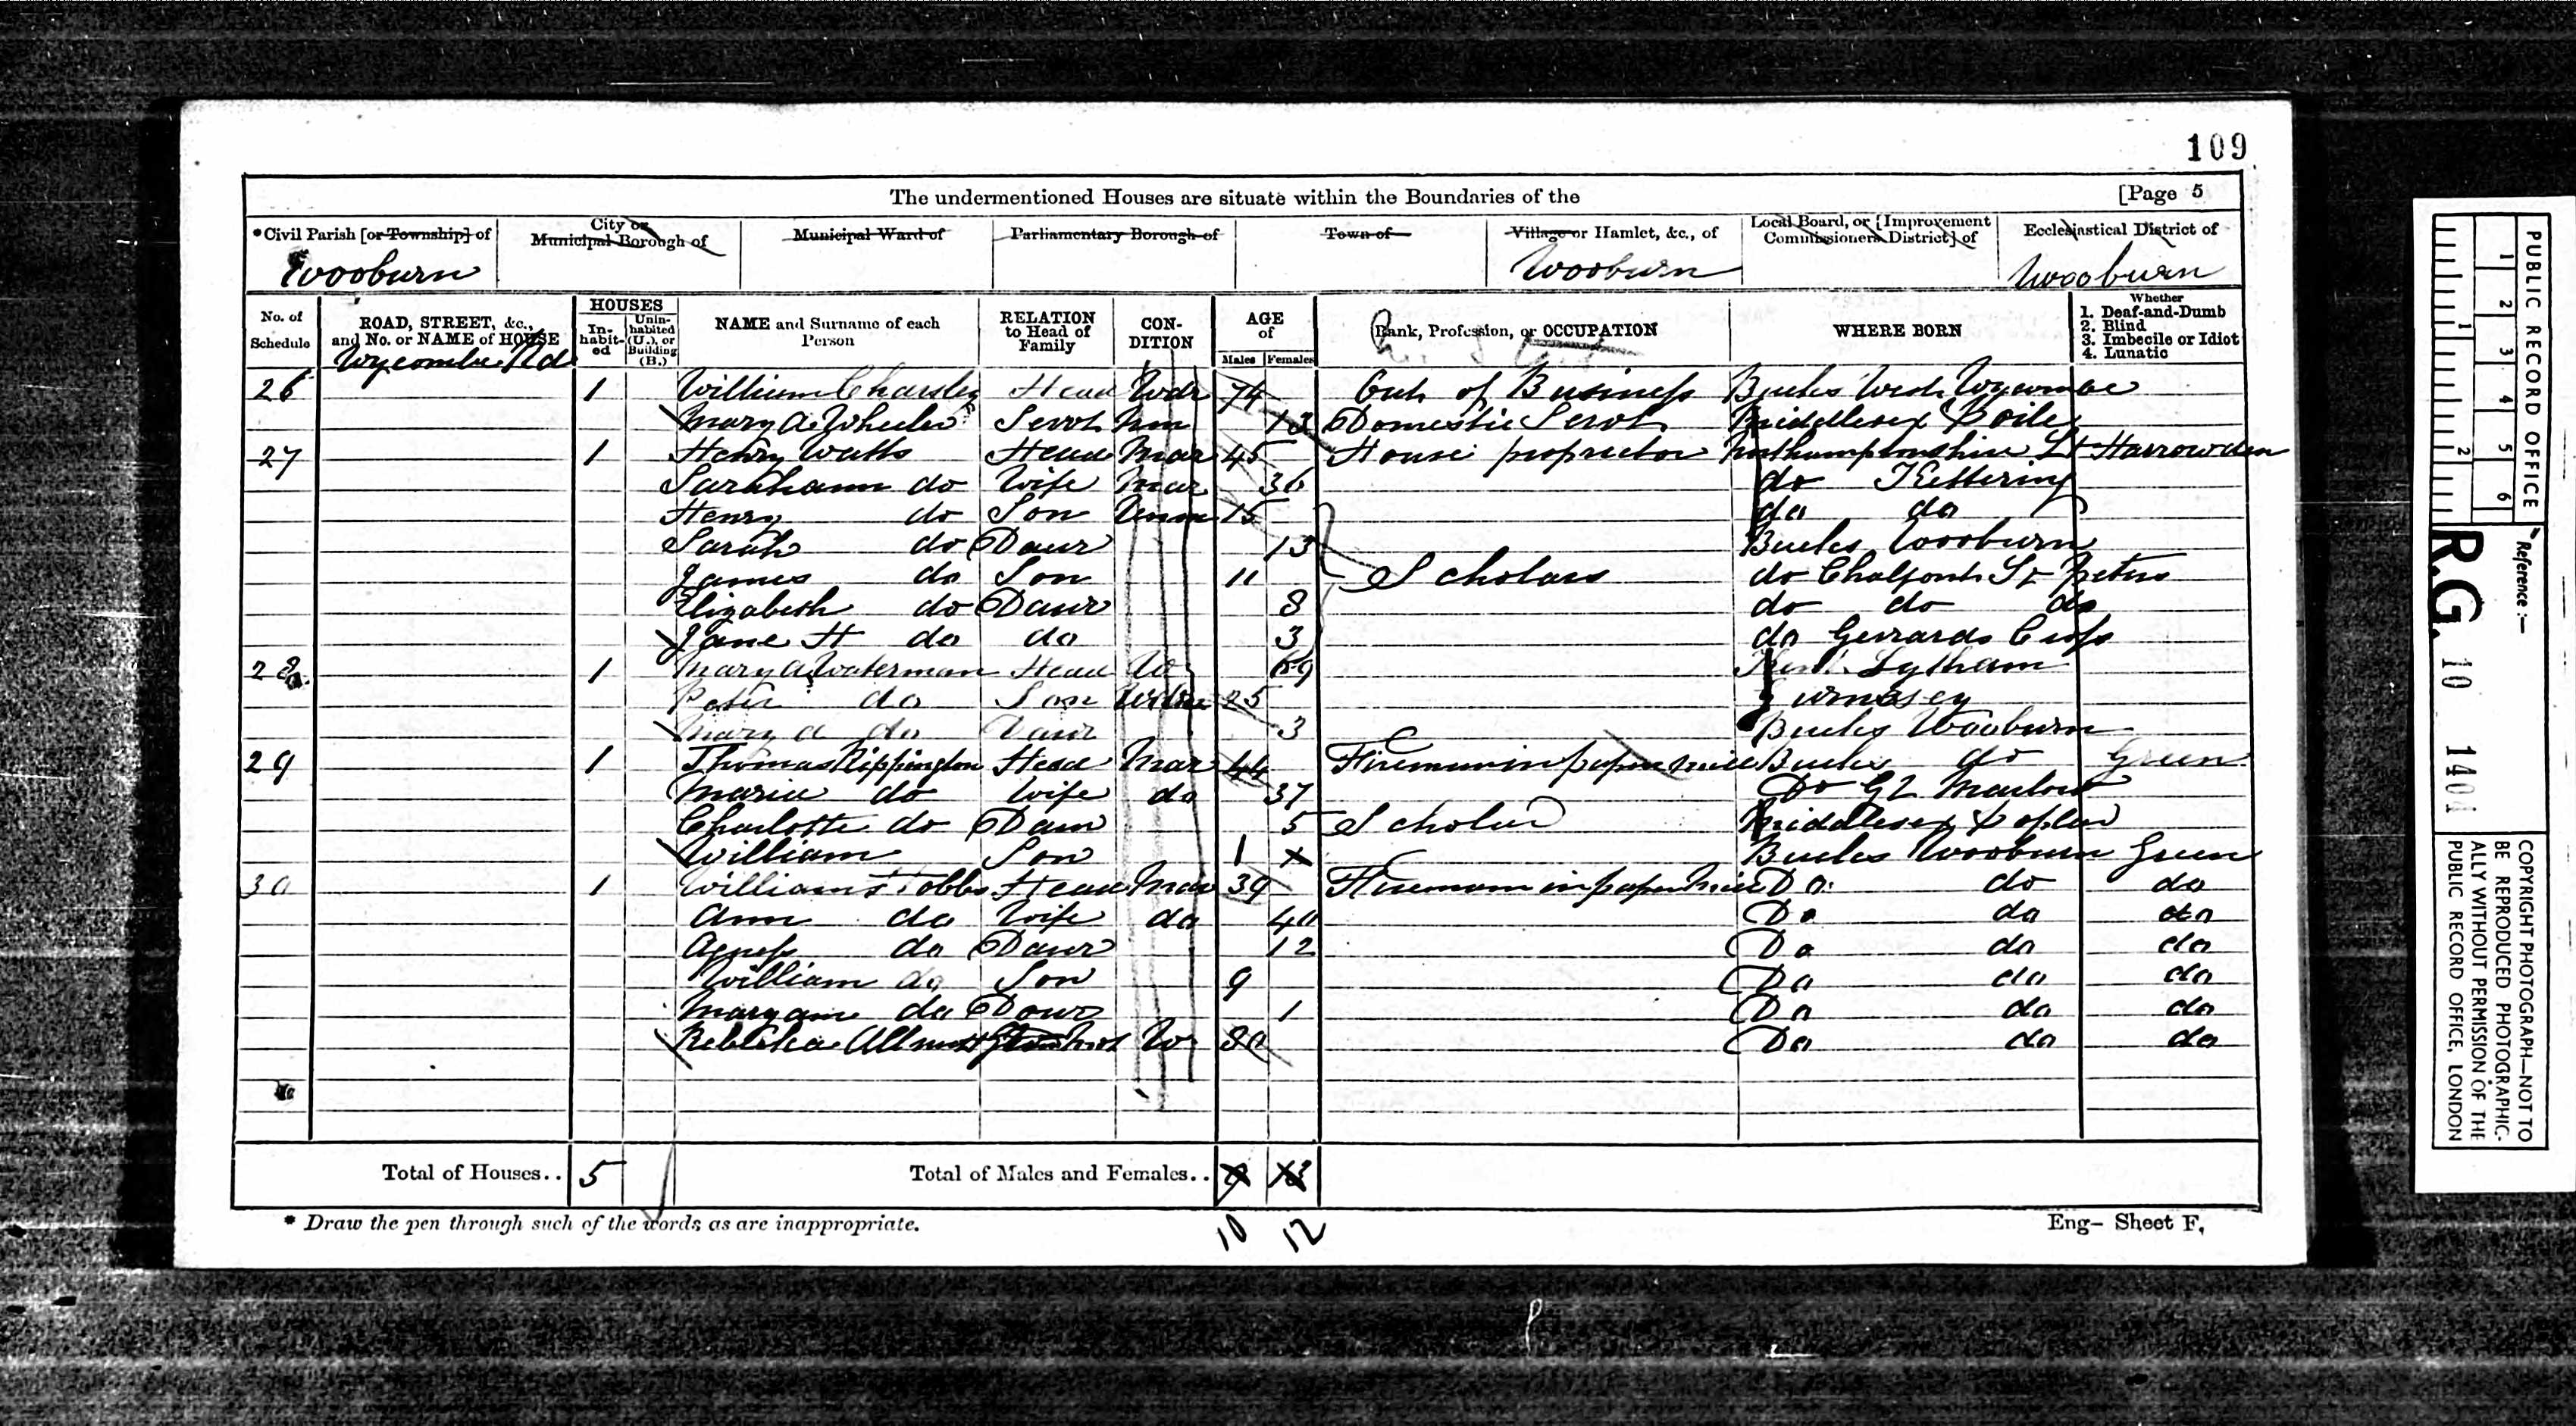 109
The undermentioned Houses are situate within the Boundaries of the [Page 5
*Civil Parish [or Township] of City or Municipal Borough of Municipal Ward of Parliamentary Borough of Town of Village or Hamlet, &c., of Local Board, or [Improvement Commissioners District] of Ecclesiastical District of
Wooburn Wooburn Wooburn
No. of Schedule ROAD, STREET, &c., and No. or NAME of HOUSE HOUSES In-habit-ed Unin-habited (U.), or Building (B.) NAME and Surname of each Person RELATION to Head of Family CON-DITION AGE of Males Females Rank, Profession, or OCCUPATION WHERE BORN Whether 1. Deaf-and-Dumb 2. Blind 3. Imbecile or Idiot 4. Lunatic
Wycombe Rd
26 1 William Charsley Head Wdr 74 Out of Business Bucks West Wycombe
Mary A Wheeler Servt Unm 13 Domestic Servt Middlesex
27 1 Henry Watts Head Mar 45 House proprietor Northamptonshire Lt Harrowden
Sarahann do Wife Mar 36 do Kettering
Henry do Son Unm 15 do do
Sarah do Daur 13 Bucks Wooburn
James do Son 11 Scholars do Chalfont St Peters
Elizabeth do Daur 8 do do do
Jane H do do 3 do Gerrards Cross
28 1 Mary A Waterman Head W 69 Kent Lytham
Peter do Son 25 Gurnesey
Mary A do Daur 3 Bucks Wooburn
29 1 Thomas Rippington Head Mar 44 Fireman in paper mill Bucks do Green
Maria do Wife do 37 Do Gt Marlow
Charlotte do Daur 5 Scholar Middlesex Poplar
William Son 1 Bucks Wooburn Green
30 1 William Hobbs Head Mar 39 Fireman in paper Mill Do do do
Ann do Wife do 40 Do do do
Agness do Daur 12 Do do do
William do Son 9 Do do do
Maryann do Daur 1 Do do do
Rebecka W 80 Do do do
Total of Houses.. 5 Total of Males and Females..
* Draw the pen through such of the words as are inappropriate. 10 12 Eng- Sheet F,
PUBLIC RECORD OFFICE
1 2 3 4 5 6
1 2
Reference:—
R.G. 10 1401
COPYRIGHT PHOTOGRAPH—NOT TO BE REPRODUCED PHOTOGRAPHIC-ALLY WITHOUT PERMISSION OF THE PUBLIC RECORD OFFICE, LONDON